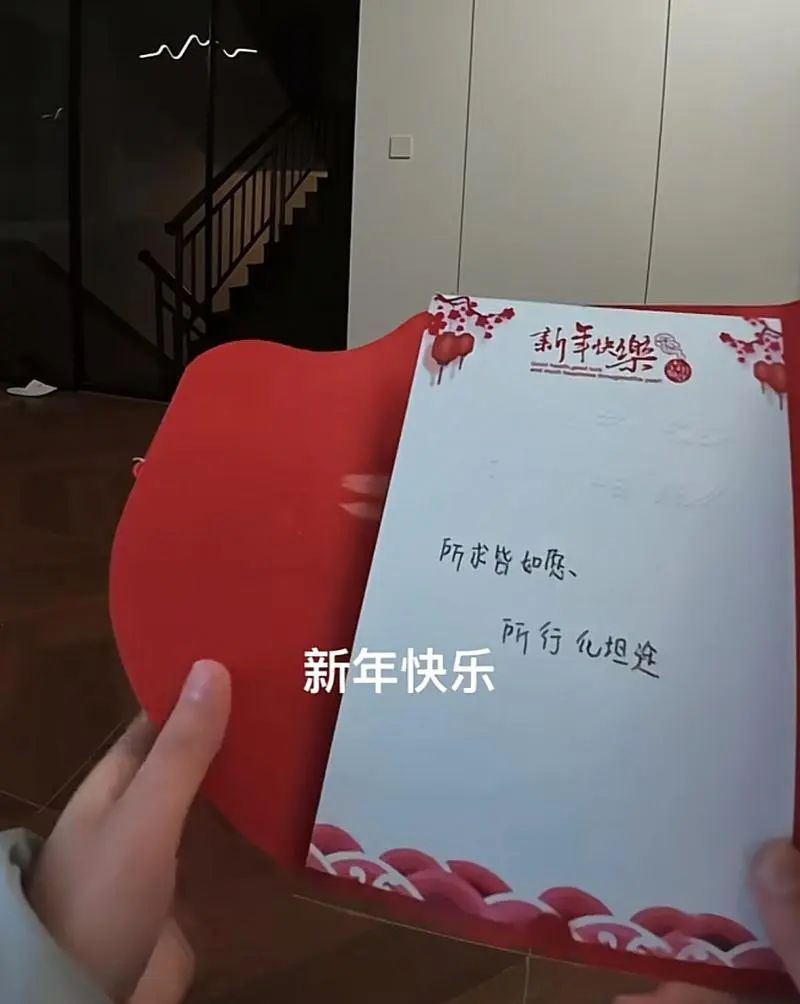 新年快樂
所求皆如愿、
所行化坦途
新年快乐